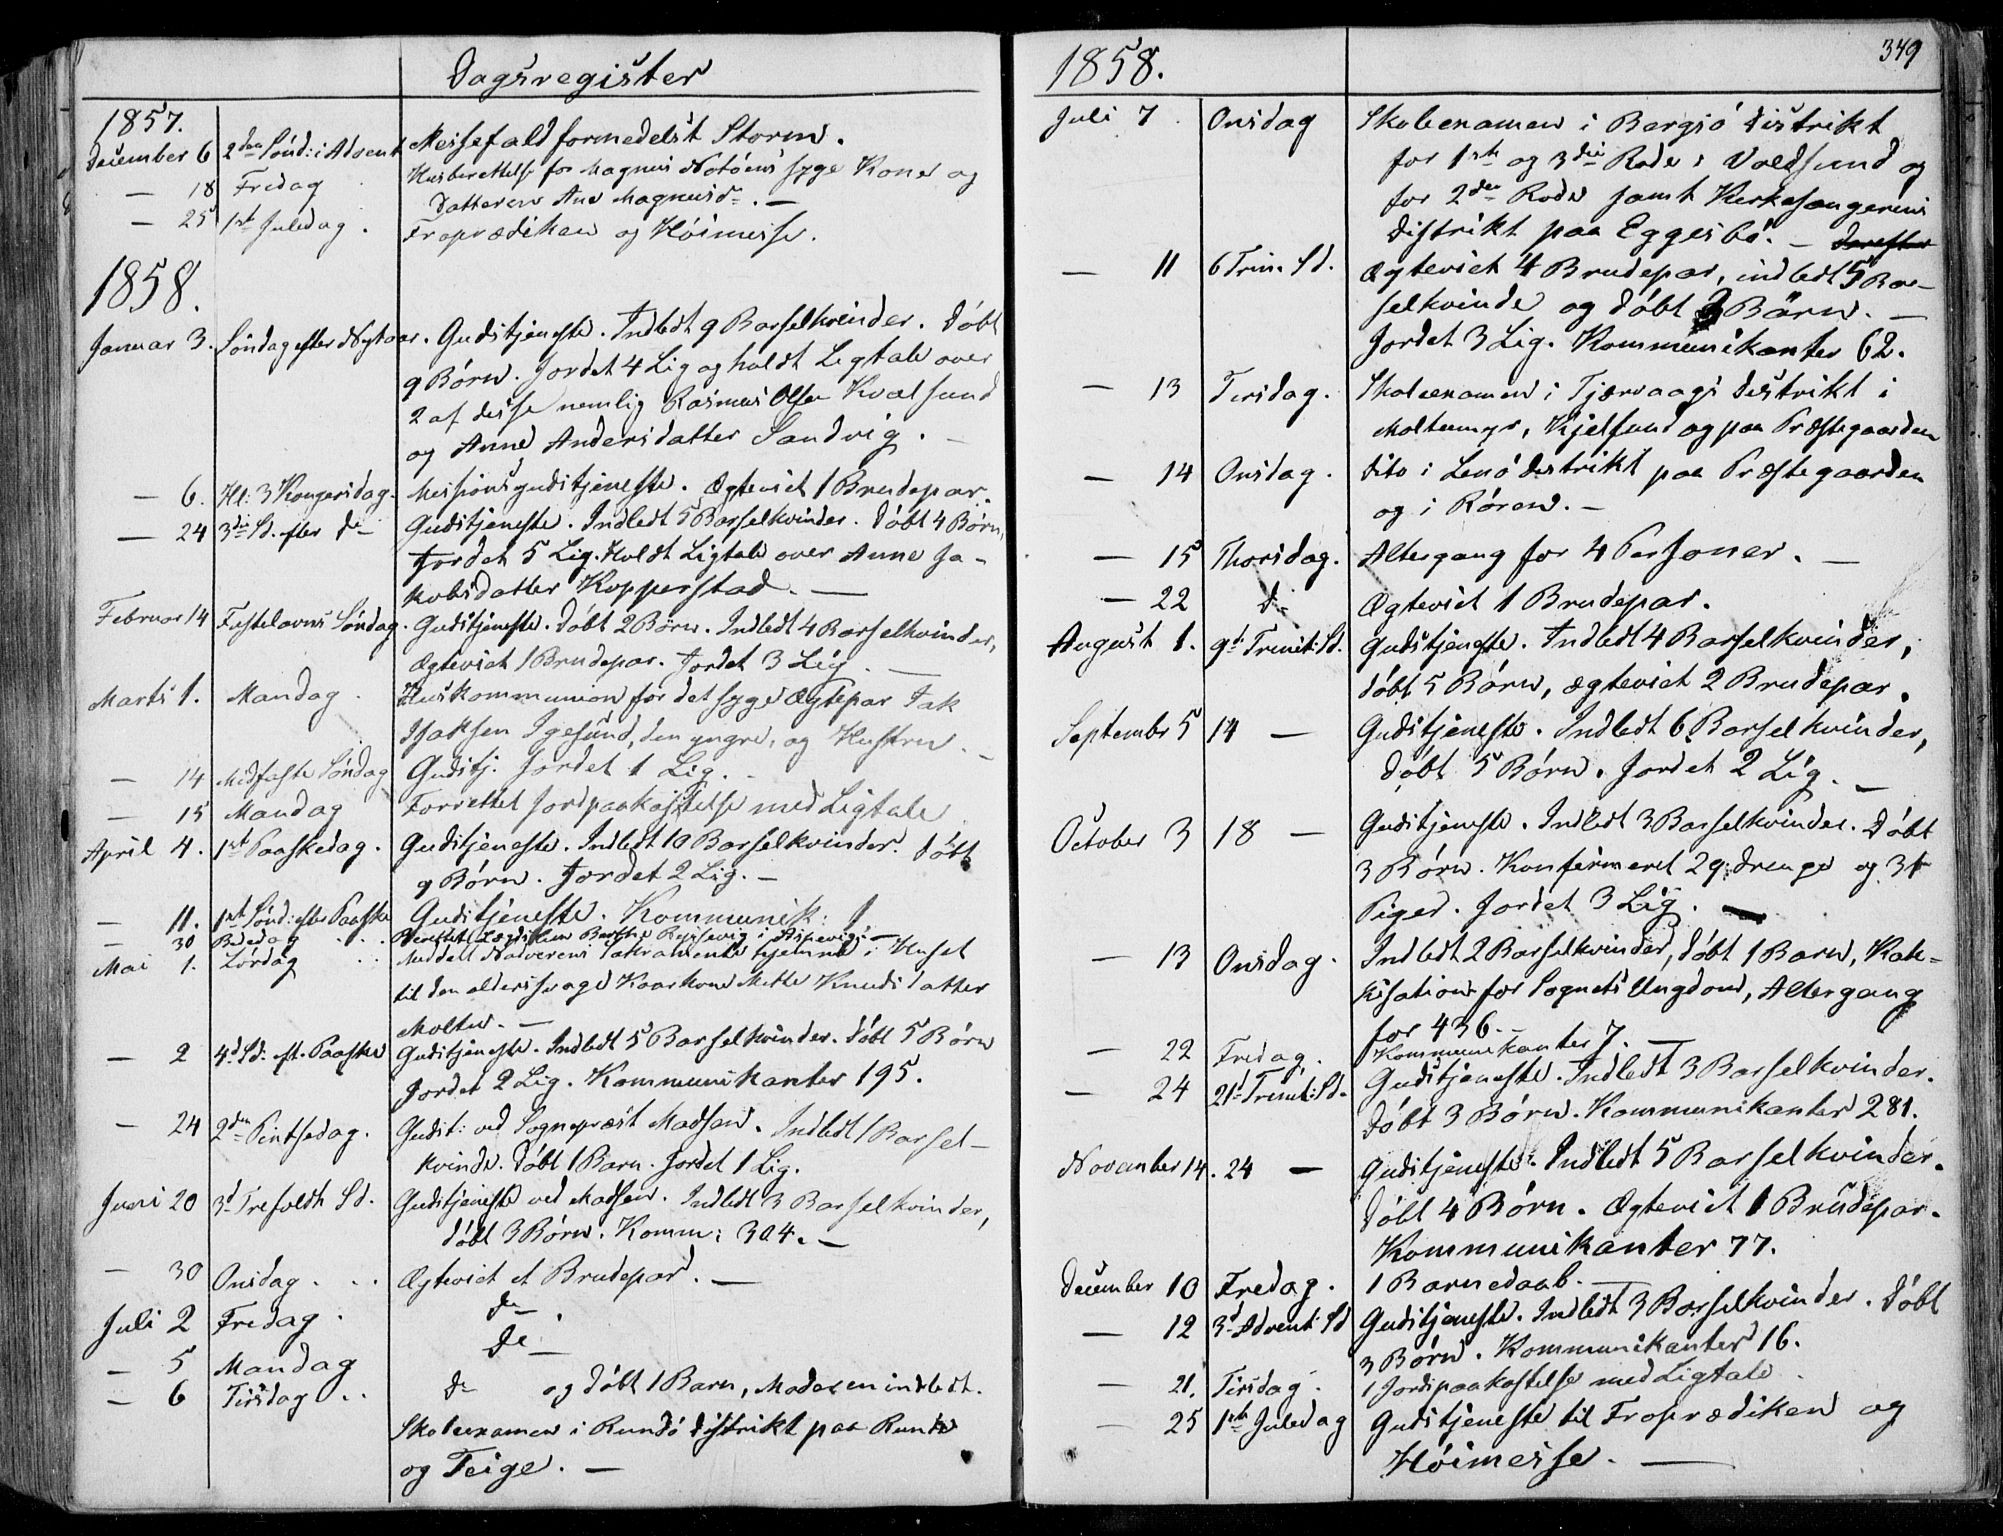 Dagsregister
1857.
December 6 2den Sönd: i Advent Messefald formedelst Storm.
— 18 Fredag Husberettelse for Magnus Notöens syge Kone og
Datteren Ane Magnusd=. —
— 25 1ste Juledag. Froprædiken og Höimesse.
1858.
Januar 3. Söndag efter Nytaar. Gudstjeneste. Indledt 9 Barselkvinder. Döbt
9 Börn. Jordet 4 Lig og holdt Ligtale over
2 af disse nemlig Rasmus Olsen Kvalsund
og Anne Andersdatter Sandvig. —
— 6. Hl: 3 Kongersdag. Missionsgudstjeneste. Ægteviet 1 Brudepar.
— 24 3die Sd. efter do Gudstjeneste. Indledt 5 Barselkvinder. Döbt 4 Börn,
Jordet 5 Lig. Holdt Ligtale over Anne Ja-
kobsdatter Kopperstad. —
Februar 14 Fastelavns Söndag. Gudstjeneste. Döbt 2 Börn. Indledt 4 Barselkvinder,
Ægteviet 1 Brudepar. Jordet 3 Lig. —
Marts 1. Mandag. Huskommunion for det syge Ægtepar Isak
Isaksen Igesund, den yngre, og Hustru. —
— 14 Midfaste Söndag Gudstj. Jordet 1 Lig. —
— 15 Mandag Forrettet Jordpaakastelse med Ligtale
April 4. 1ste Paaskedag. Gudstjeneste. Indledt 10 Barselkvinder. Döbt
9 Börn. Jordet 2 Lig. —
— 11. 1ste Sönd: efter Paaske Gudstjeneste. Kommunik:
— 30 Bededag
Mai 1. Lördag Meddelt Nadverens Sakramente hjemme i Huset
til den alderssvage Kaarkone Mette Knudsdatter
Moltu. —
— 2 4d Sd: ef. Paaske Gudstjeneste. Indledt 5 Barselkvinder. Döbt 5 Börn
Jordet 2 Lig. Kommunikanter 195.
— 24 2den Pintsedag. Gudst: ved Sognepræst Madsen. Indledt 1 Barsel-
kvinde. Döbt 1 Barn. Jordet 1 Lig.
Juni 20 3d Trefoldh Sd. Gudstjeneste ved Madsen. Indledt 3 Barselkvinder,
döbt 3 Börn. Komm: 304. —
— 30 Onsdag. Ægteviet et Brudepar. —
Juli 2 Fredag. do.
— 5 Mandag do
— 6 Tirsdag do og döbt 1 Barn, Moderen indledt.
Skoleexamen i Rundö Distrikt paa Runde
og Teige. —
1858.
349
Juli 7. Onsdag Skoleexamen i Bergsö Distrikt
for 1ste og 3die Rode i Voldsund og
for 2den Rode samt Kirkesangerens
Distrikt paa Eggesbö. — derefter
— 11 6 Trin. Sd. Ægteviet 4 Brudepar, indledt 5 Bar-
selkvinde og döbt 3 Börn. —
Jordet 3 Lig. Kommunikanter 62.
— 13 Tirsdag. Skoleexamen i Tjærvaags Distrikt i
Moltumyr, Kjelsund og paa Præstegaarden
— 14 Onsdag. dito i Lenö Distrikt paa Præstegaarden
og i Rören. —
— 15 Thorsdag. Altergang for 4 Personer. —
— 22 do Ægteviet 1 Brudepar.
August 1. 9d Trinit: Sd. Gudstjeneste. Indledt 4 Barselkvinder,
döbt 5 Börn, ægteviet 2 Brudepar.
September 5 14 — Gudstjeneste. Indledt 6 Barselkvinder,
Döbt 5 Börn. Jordet 2 Lig. —
October 3 18 — Gudstjeneste. Indledt 3 Barselkvinder. Döbt
3 Börn. Konfirmeret 29 Drenge og 31
Piger. Jordet 3 Lig. —
— 13 Onsdag. Indledt 2 Barselkvinder, döbt 1 Barn, Kate-
kisation for Sognets Ungdom, Altergang
for 436. —
— 22 Fredag. Kommunikanter 7. —
— 24 21d Trinit: Sd. Gudstjeneste. Indledt 3 Barselkvinder.
Döbt 3 Börn. Kommunikanter 281.
November 14. 24 — Gudstjeneste. Indledt 5 Barselkvinder.
Döbt 4 Börn. Ægteviet 1 Brudepar.
Kommunikanter 77.
December 10 Fredag. 1 Barnedaab. —
— 12 3d Advent: Sd Gudstjeneste. Indledt 3 Barselkvinder. Döbt
3 Börn. Kommunikanter 16.
— 21. Tirsdag. 1 Jordpaakastelse med Ligtale.
— 25 1ste Juledag Gudstjeneste til Froprædiken og
Höimesse. —